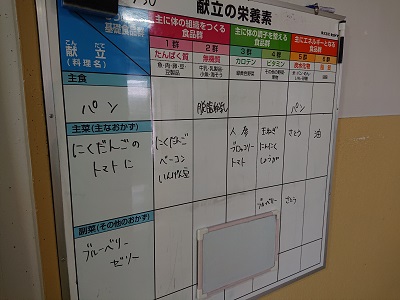 献立の栄養素
基礎食品群
主に体の組織をつくる
食品群
主に体の調子を整える
食品群
主にエネルギーとなる
食品群
こん だて
献立
(料理名)
1群 2群 3群 4群 5群 6群
たんぱく質 無機質 カロテン ビタミン 炭水化物 脂質
魚・肉・卵・豆・豆製品
牛乳・乳製品・小魚・海そう
緑黄色野菜
主食
パン
パン
主菜(主なおかず)
にくだんごの
トマトに
にくだんご
ベーコン
いんげん豆
人参
ブロッコリー
トマト
玉ねぎ
にんにく
しょうが
さとう
油
副菜(その他のおかず)
ブルーベリー
ゼリー
ブルーベリー
さとう